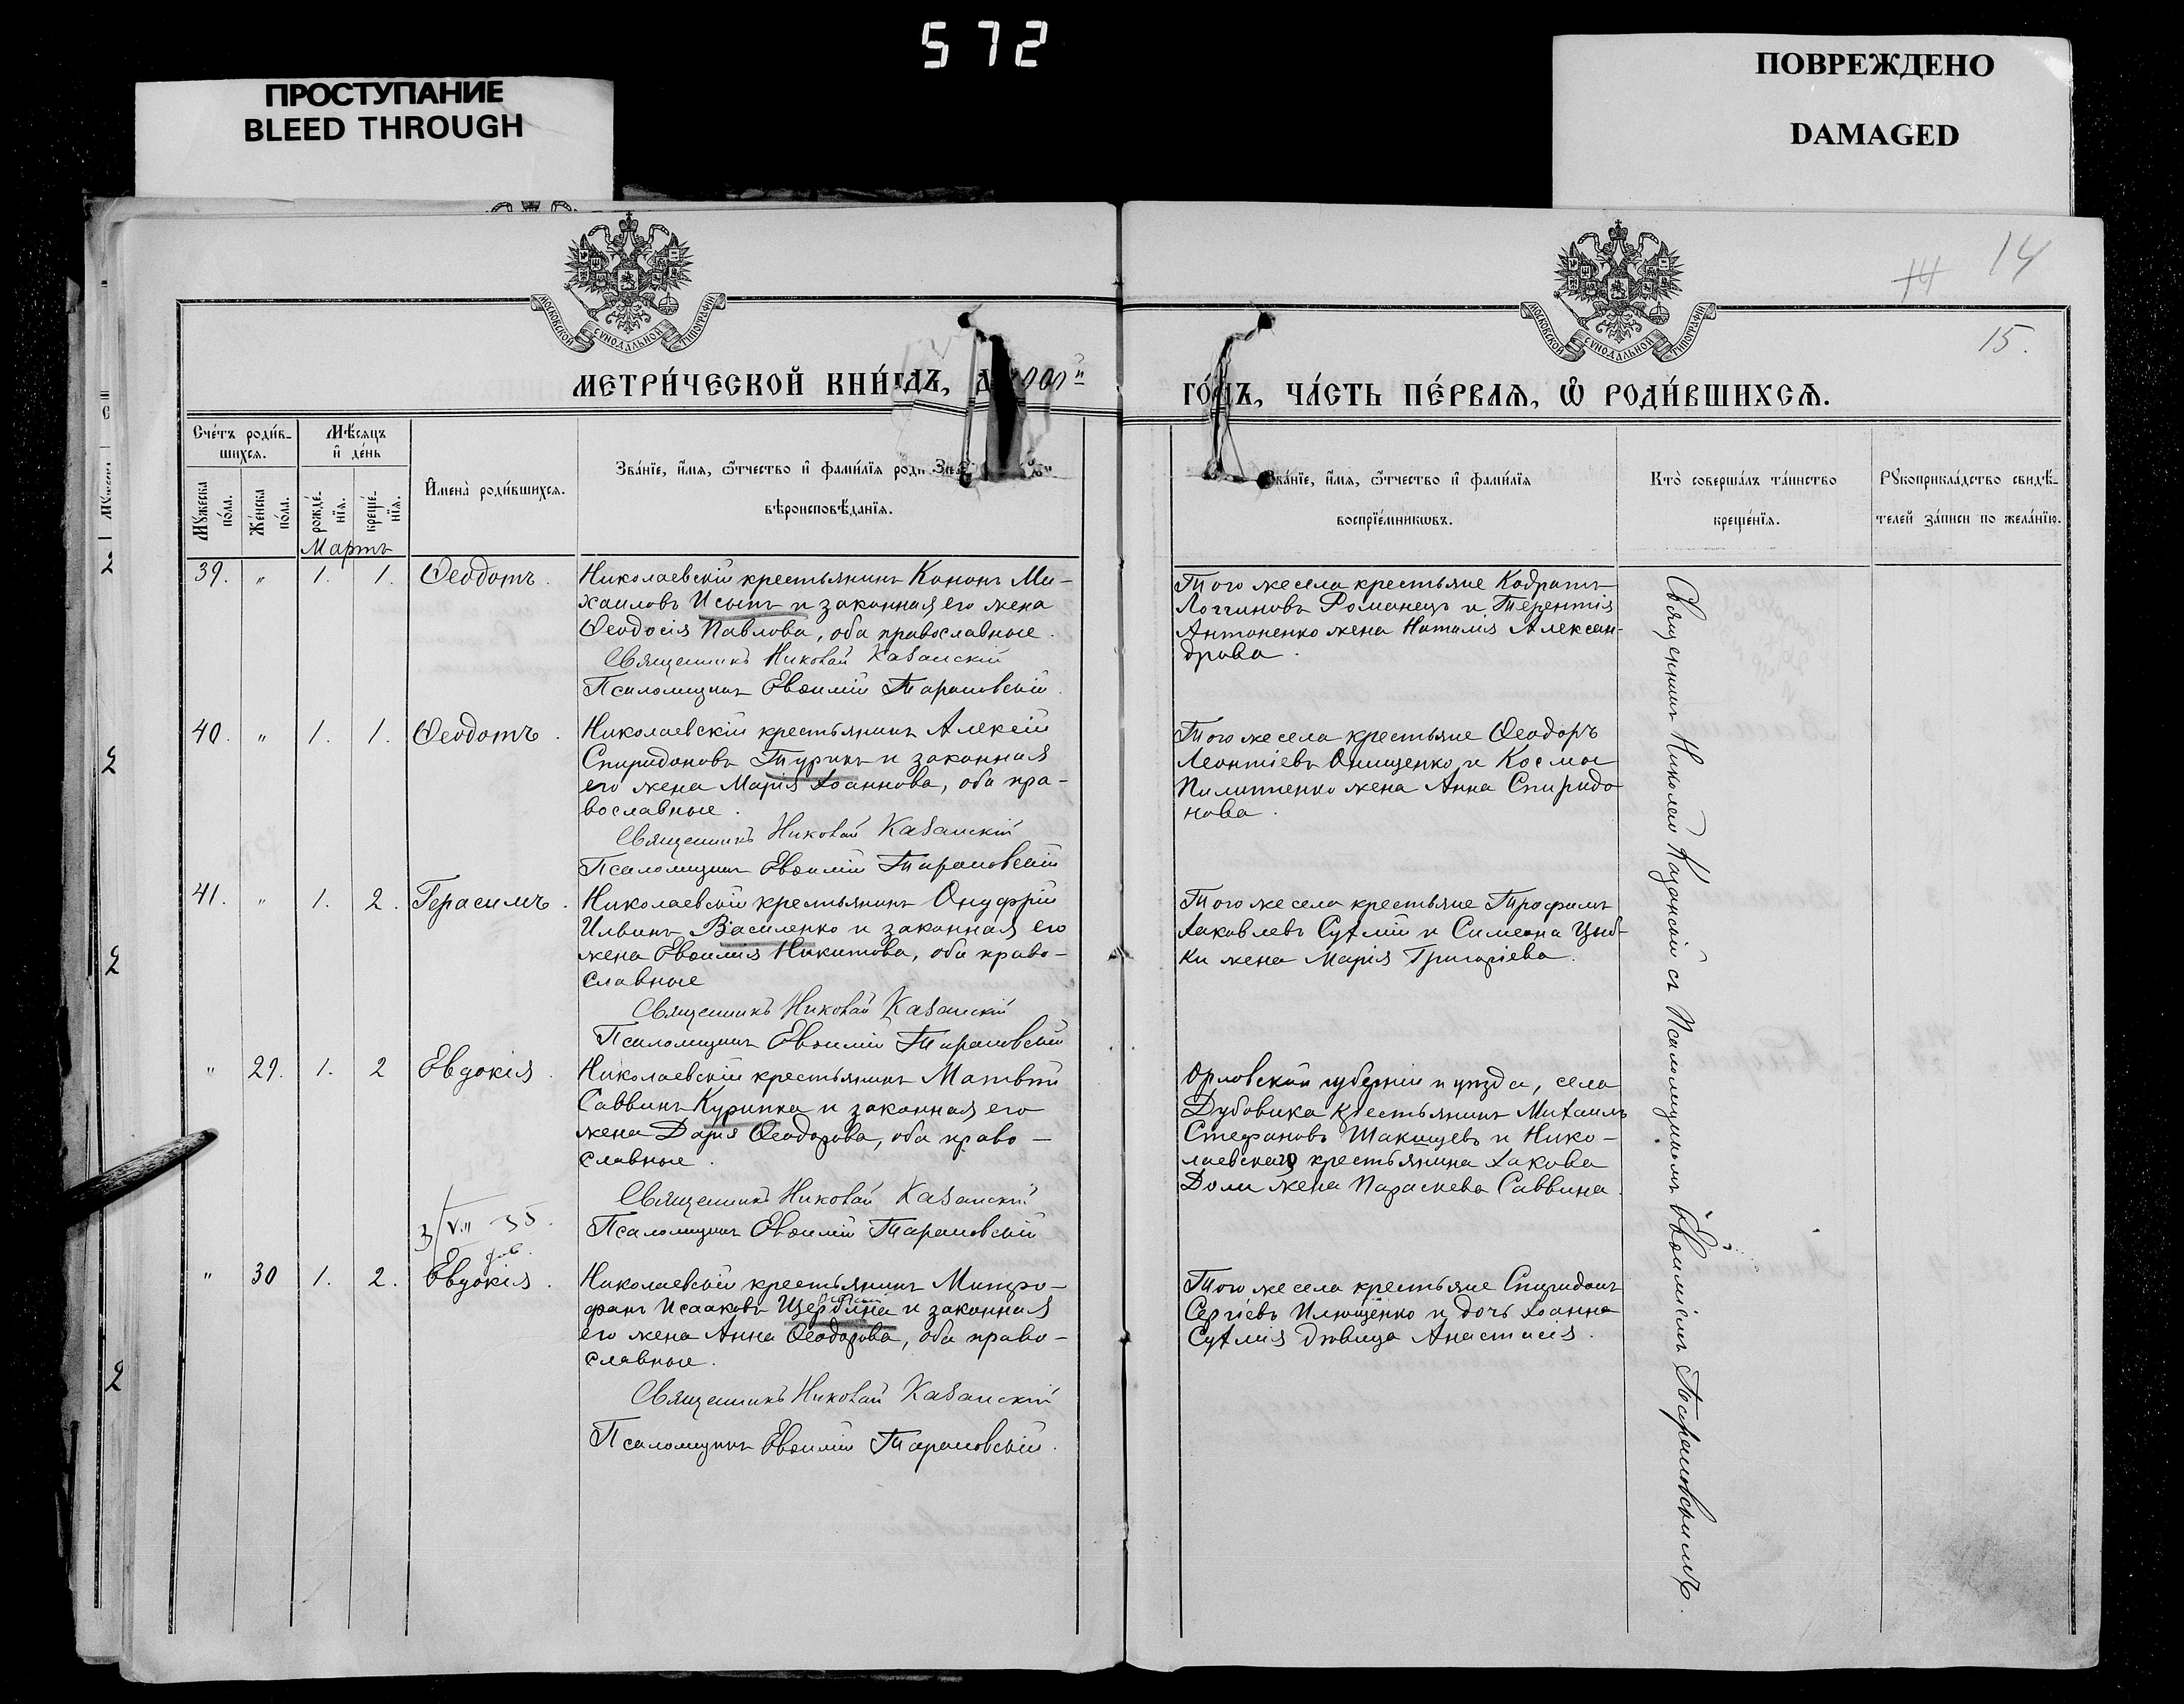 572
ПРОСТУПАНИЕ
BLEED THROUGH
ПОВРЕЖДЕНО
DAMAGED
14
14
15.
МОСКОВСКОЙ СѴНОДАЛЬНОЙ ТИПОГРАФІИ
МОСКОВСКОЙ СѴНОДАЛЬНОЙ ТИПОГРАФІИ
МЕТРИ́ЧЕСКОЙ КНИ́ГИ,
ГО́ДЪ, ЧА́СТЬ ПЕ́РВАѦ, Ѡ҆ РОДИ́ВШИХСѦ.
Сче́тъ роди́в-
шихсѧ.
Мѣ́сѧцъ
и҆ де́нь
Мꙋ́жеска по́ла.
Же́нска по́ла.
рожде́-нїѧ.
креще́-нїѧ.
И҆мена̀ роди́вшихсѧ.
Зва́нїе, и҆́мѧ, ѻ҆́тчество и҆ фами́лїѧ
вѣроисповѣ́данїѧ.
Зва́нїе, и҆́мѧ, ѻ҆́тчество и҆ фами́лїѧ
воспрїе́мникѡвъ.
Кто̀ соверша́лъ та́инство
креще́нїѧ.
Рꙋкоприкла́дство свидѣ́-
телей за́писи по жела́нїю.
Мартъ
39. " 1. 1. Ѳеодотъ.
Николаевскій крестьянинъ Кононъ Ми-
хаиловъ Исыпъ и законная его жена
Ѳеодосія Павлова, оба православные.
Священникъ Николай Казанскій
Псаломщикъ Евѳимій Тарановскій.
Того же села крестьяне Кодратъ
Логгиновъ Романецъ и Терентія
Антоненко жена Наталія Алексан-
драва.
40. " 1. 1. Ѳеодотъ.
Николаевскій крестьянинъ Алексій
Спиридоновъ Туринъ и законная
его жена Марія Іоаннова, оба пра-
вославные.
Священникъ Николай Казанскій
Псаломщикъ Евѳимій Тарановскій
Того же села крестьяне Ѳеодоръ
Леонтіевъ Онищенко и Космы
Пилипенко жена Анна Спиридо
нова.
41. " 1. 2. Герасимъ.
Николаевскій крестьянинъ Онуфрій
Ильинъ Василенко и законная его
жена Евѳимія Никитова, оба право-
славные
Священникъ Николай Казанскій
Псаломщикъ Евѳимій Тарановскій
Того же села крестьяне Трофимъ
Іаковлевъ Сухлій и Симеона Цыб-
ки жена Марія Григоріева.
" 29. 1. 2 Евдокія.
Николаевскій крестьянинъ Матвѣй
Саввинъ Курипка и законная его
жена Дарія Ѳеодорова, оба право-
славные.
Священникъ Николай Казанскій
Псаломщикъ Евѳимій Тарановскій
Орловской губерніи и уѣзда, села
Дубовика крестьянинъ Михаилъ
Стефановъ Шакищевъ и Нико-
лаевскаго крестьянина Іакова
Доли жена Параскева Саввина.
3/VII 35.
" 30 1. 2. Евдокія.
Николаевскій крестьянинъ Митро-
фанъ Исааковъ Щербина и законная
его жена Анна Ѳеодорова, оба право-
славные.
Священникъ Николай Казанскій
Псаломщикъ Евѳимій Тарановскій.
Того же села крестьяне Спиридонъ
Сергіевъ Илющенко и дочь Іоанна
Сухлія дѣвица Анастасія.
Священникъ Николай Казанскій съ Псаломщикомъ Евѳиміемъ Тарановскимъ.